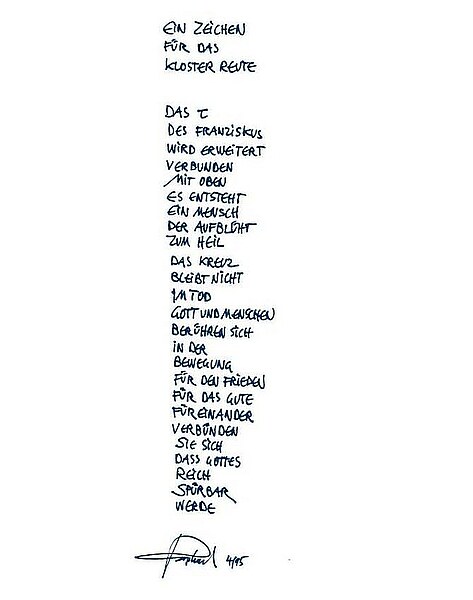 EIN ZEICHEN
FÜR DAS
KLOSTER REUTE
DAS T
DES FRANZISKUS
WIRD ERWEITERT
VERBUNDEN
MIT OBEN
ES ENTSTEHT
EIN MENSCH
DER AUFBLÜHT
ZUM HEIL
DAS KREUZ
BLEIBT NICHT
IM TOD
GOTT UND MENSCHEN
BERÜHREN SICH
IN DER
BEWEGUNG
FÜR DEN FRIEDEN
FÜR DAS GUTE
FÜREINANDER
VERBÜNDEN
SIE SICH
DASS GOTTES
REICH
SPÜRBAR
WERDE
4/95